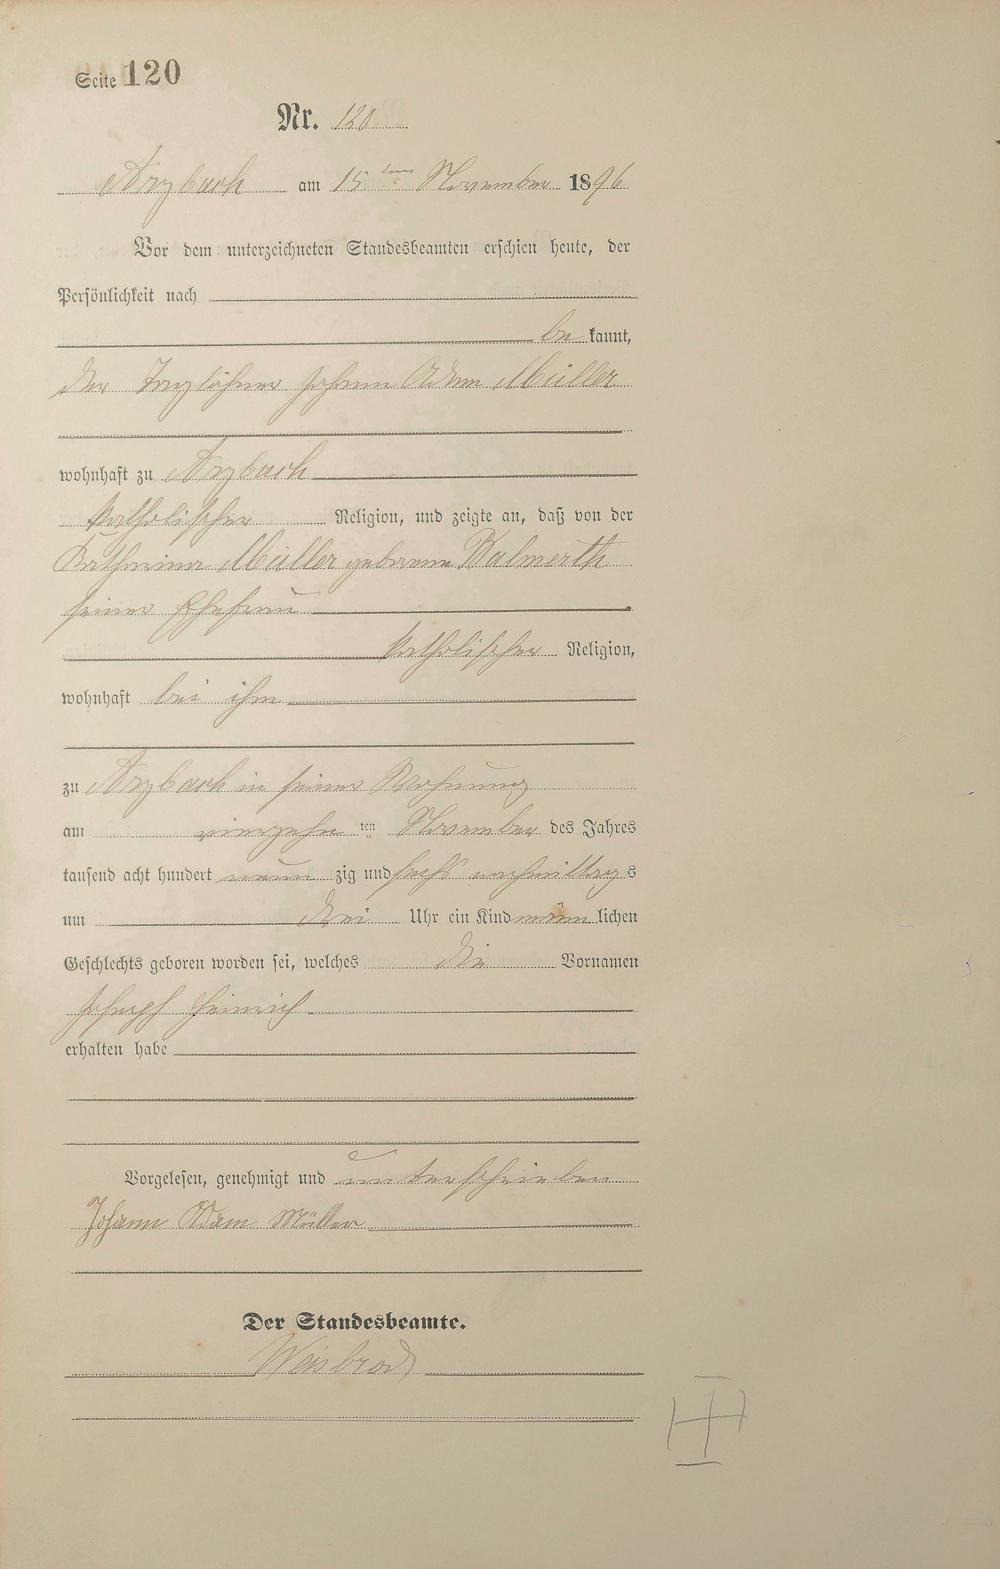 Seite 120
Nr. 120
Arzbach am 15ten November 1896
Vor dem unterzeichneten Standesbeamten erschien heute, der
Persönlichkeit nach
be kannt,
der Taglöhner Johann Adam Müller
wohnhaft zu Arzbach
katholischer Religion, und zeigte an, daß von der
Katharina Müller geborene Balmerth
seiner Ehefrau
katholischer Religion,
wohnhaft bei ihm
zu Arzbach in seiner Wohnung
am vierzehn ten November des Jahres
tausend acht hundert neun zig und sechs nachmittag s
um drei Uhr ein Kind männ lichen
Geschlechts geboren worden sei, welches die Vornamen
Joseph Heinrich
erhalten habe
Vorgelesen, genehmigt und unterschrieben
Johann Adam Müller
Der Standesbeamte.
Weisbrod